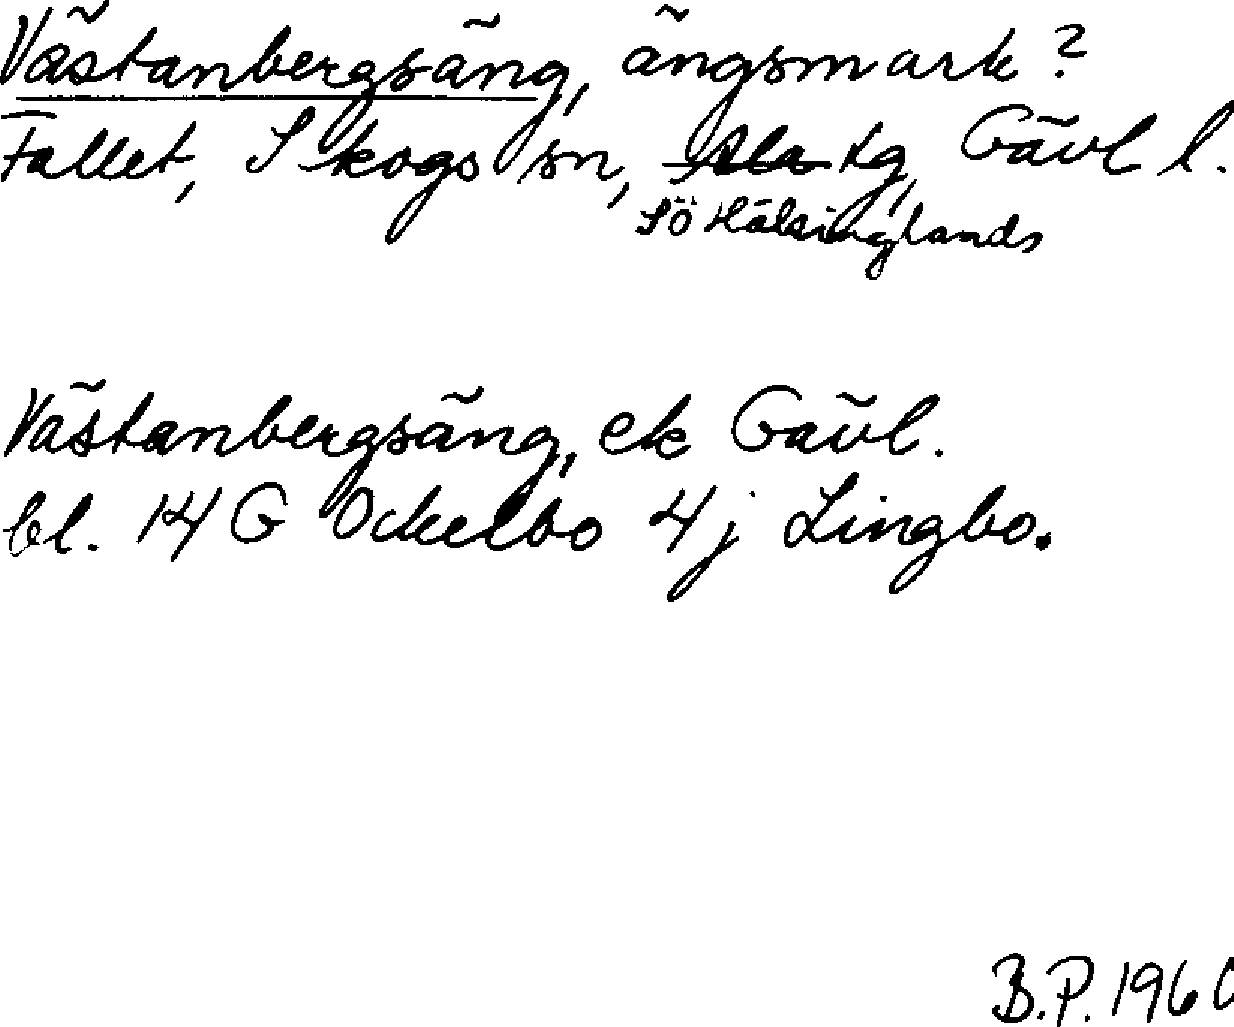 Västanbergsäng, ängsmark?
Fallet, Skogs sn, Ala tg, Gävl l.
Sö Hälsinglands
Västanbergsäng, ek Gävl.
bl. 14 G Ockelbo 4j Lingbo.
B.P. 1960